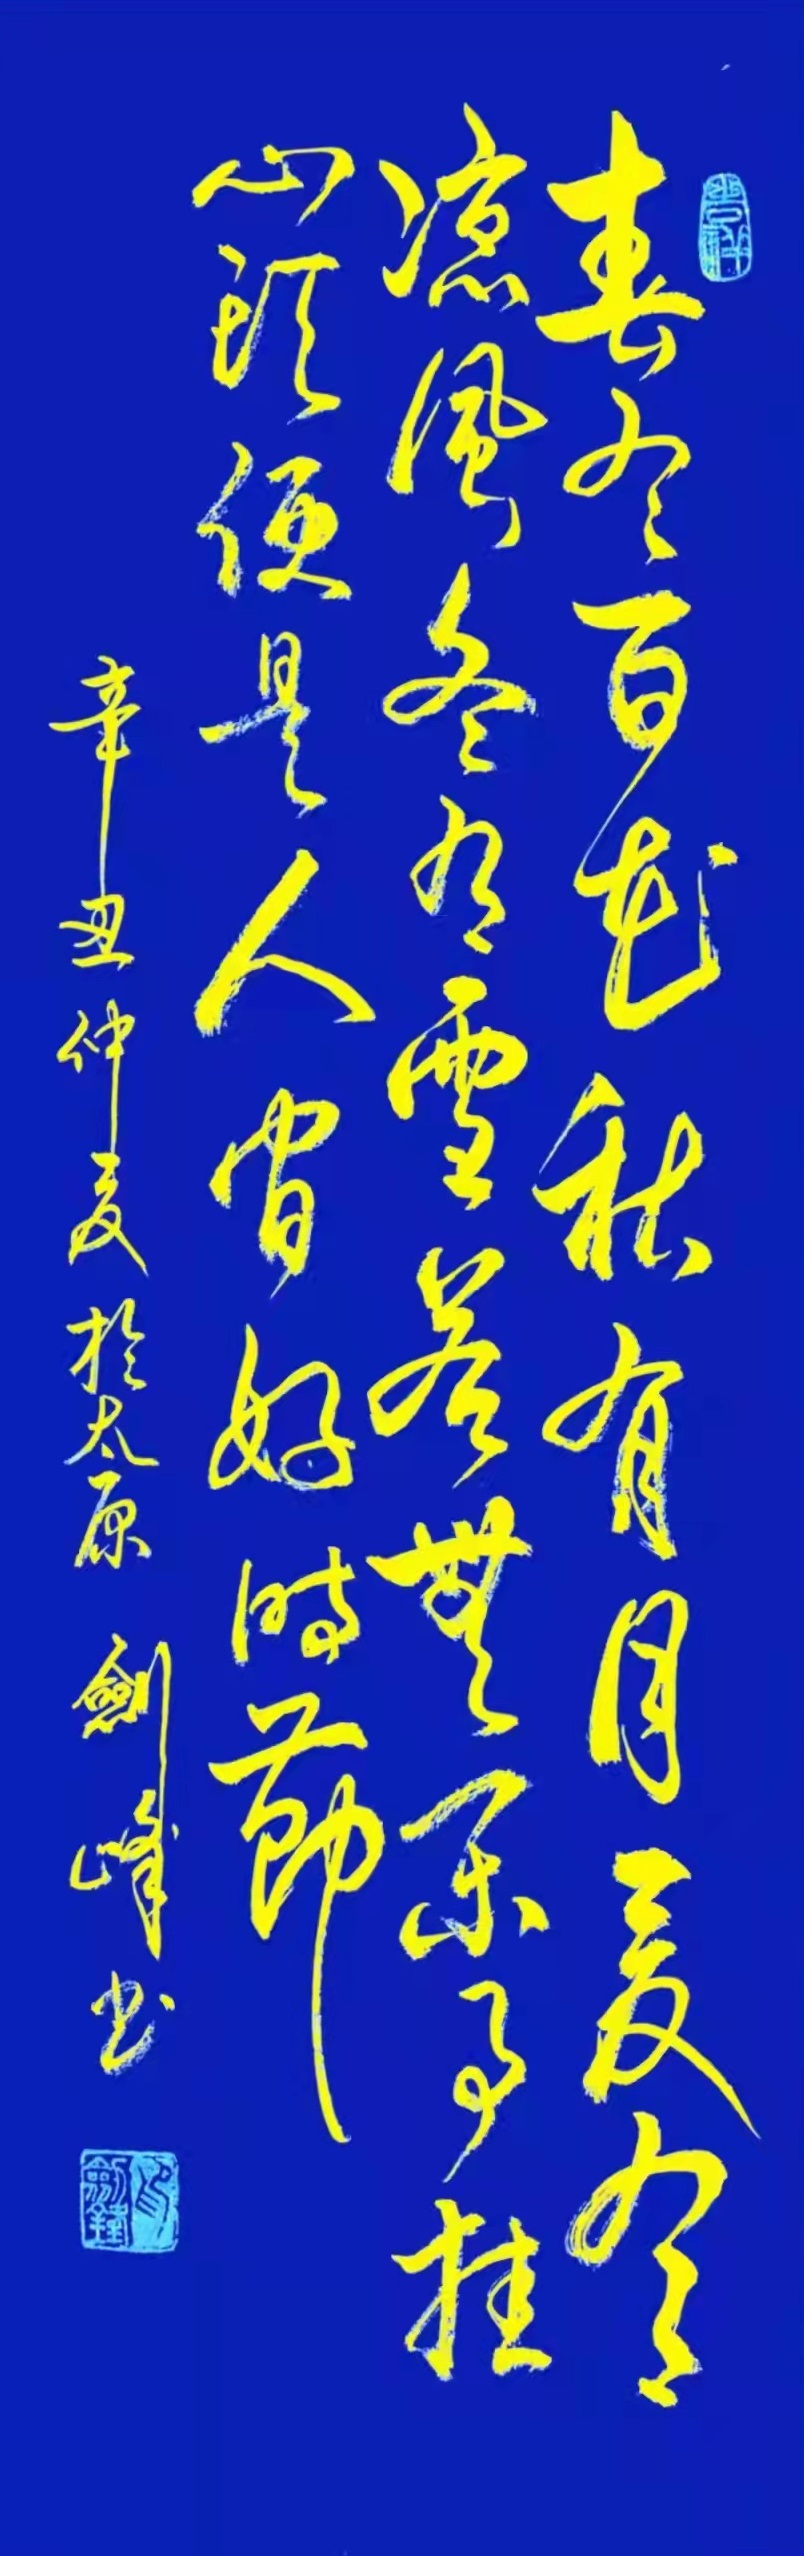 春有百花秋有月夏有
凉風冬有雪若無闲事挂
心頭便是人间好時節
辛丑仲夏於太原 劍峰书